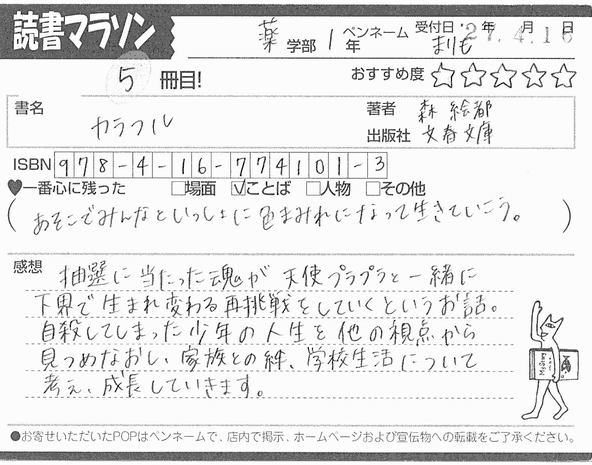 読書マラソン
薬 学部 1 年 ペンネーム まりも 受付日 27年 4月 16日
5 冊目! おすすめ度 ☆☆☆☆☆
書名 カラフル 著者 森 絵都
出版社 文春文庫
ISBN 978-4-16-774101-3
♥一番心に残った □場面 ☑ことば □人物 □その他
(あそこでみんなといっしょに色まみれになって生きていこう。)
感想 抽選に当たった魂が天使プラプラと一緒に
下界で生まれ変わる再挑戦をしていくというお話。
自殺してしまった少年の人生を他の視点から
見つめなおし、家族との絆、学校生活について
考え、成長していきます。
●お寄せいただいたPOPはペンネームで、店内で掲示、ホームページおよび宣伝物への転載をご了承ください。